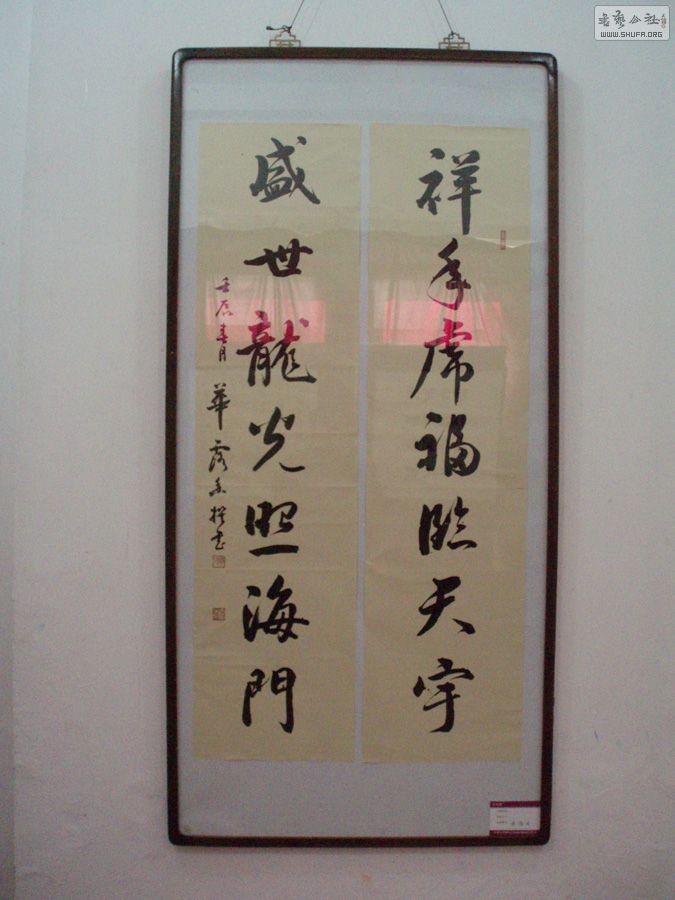 祥年虎福臨天宇
盛世龍光照海門
壬辰春月
書藝公社
WWW.SHUFA.ORG